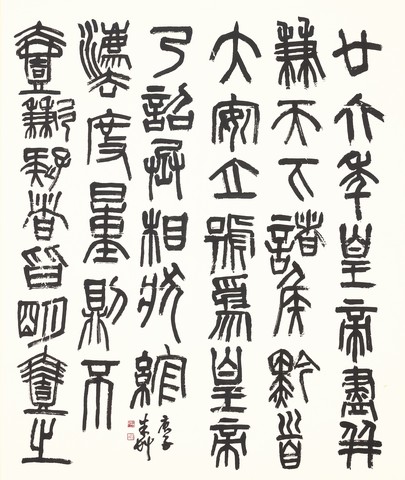 廿六年皇帝盡并
兼天下諸侯黔首
大安立號爲皇帝
乃詔丞相狀綰
灋度量則不
壹歉疑者皆明壹之
庚子